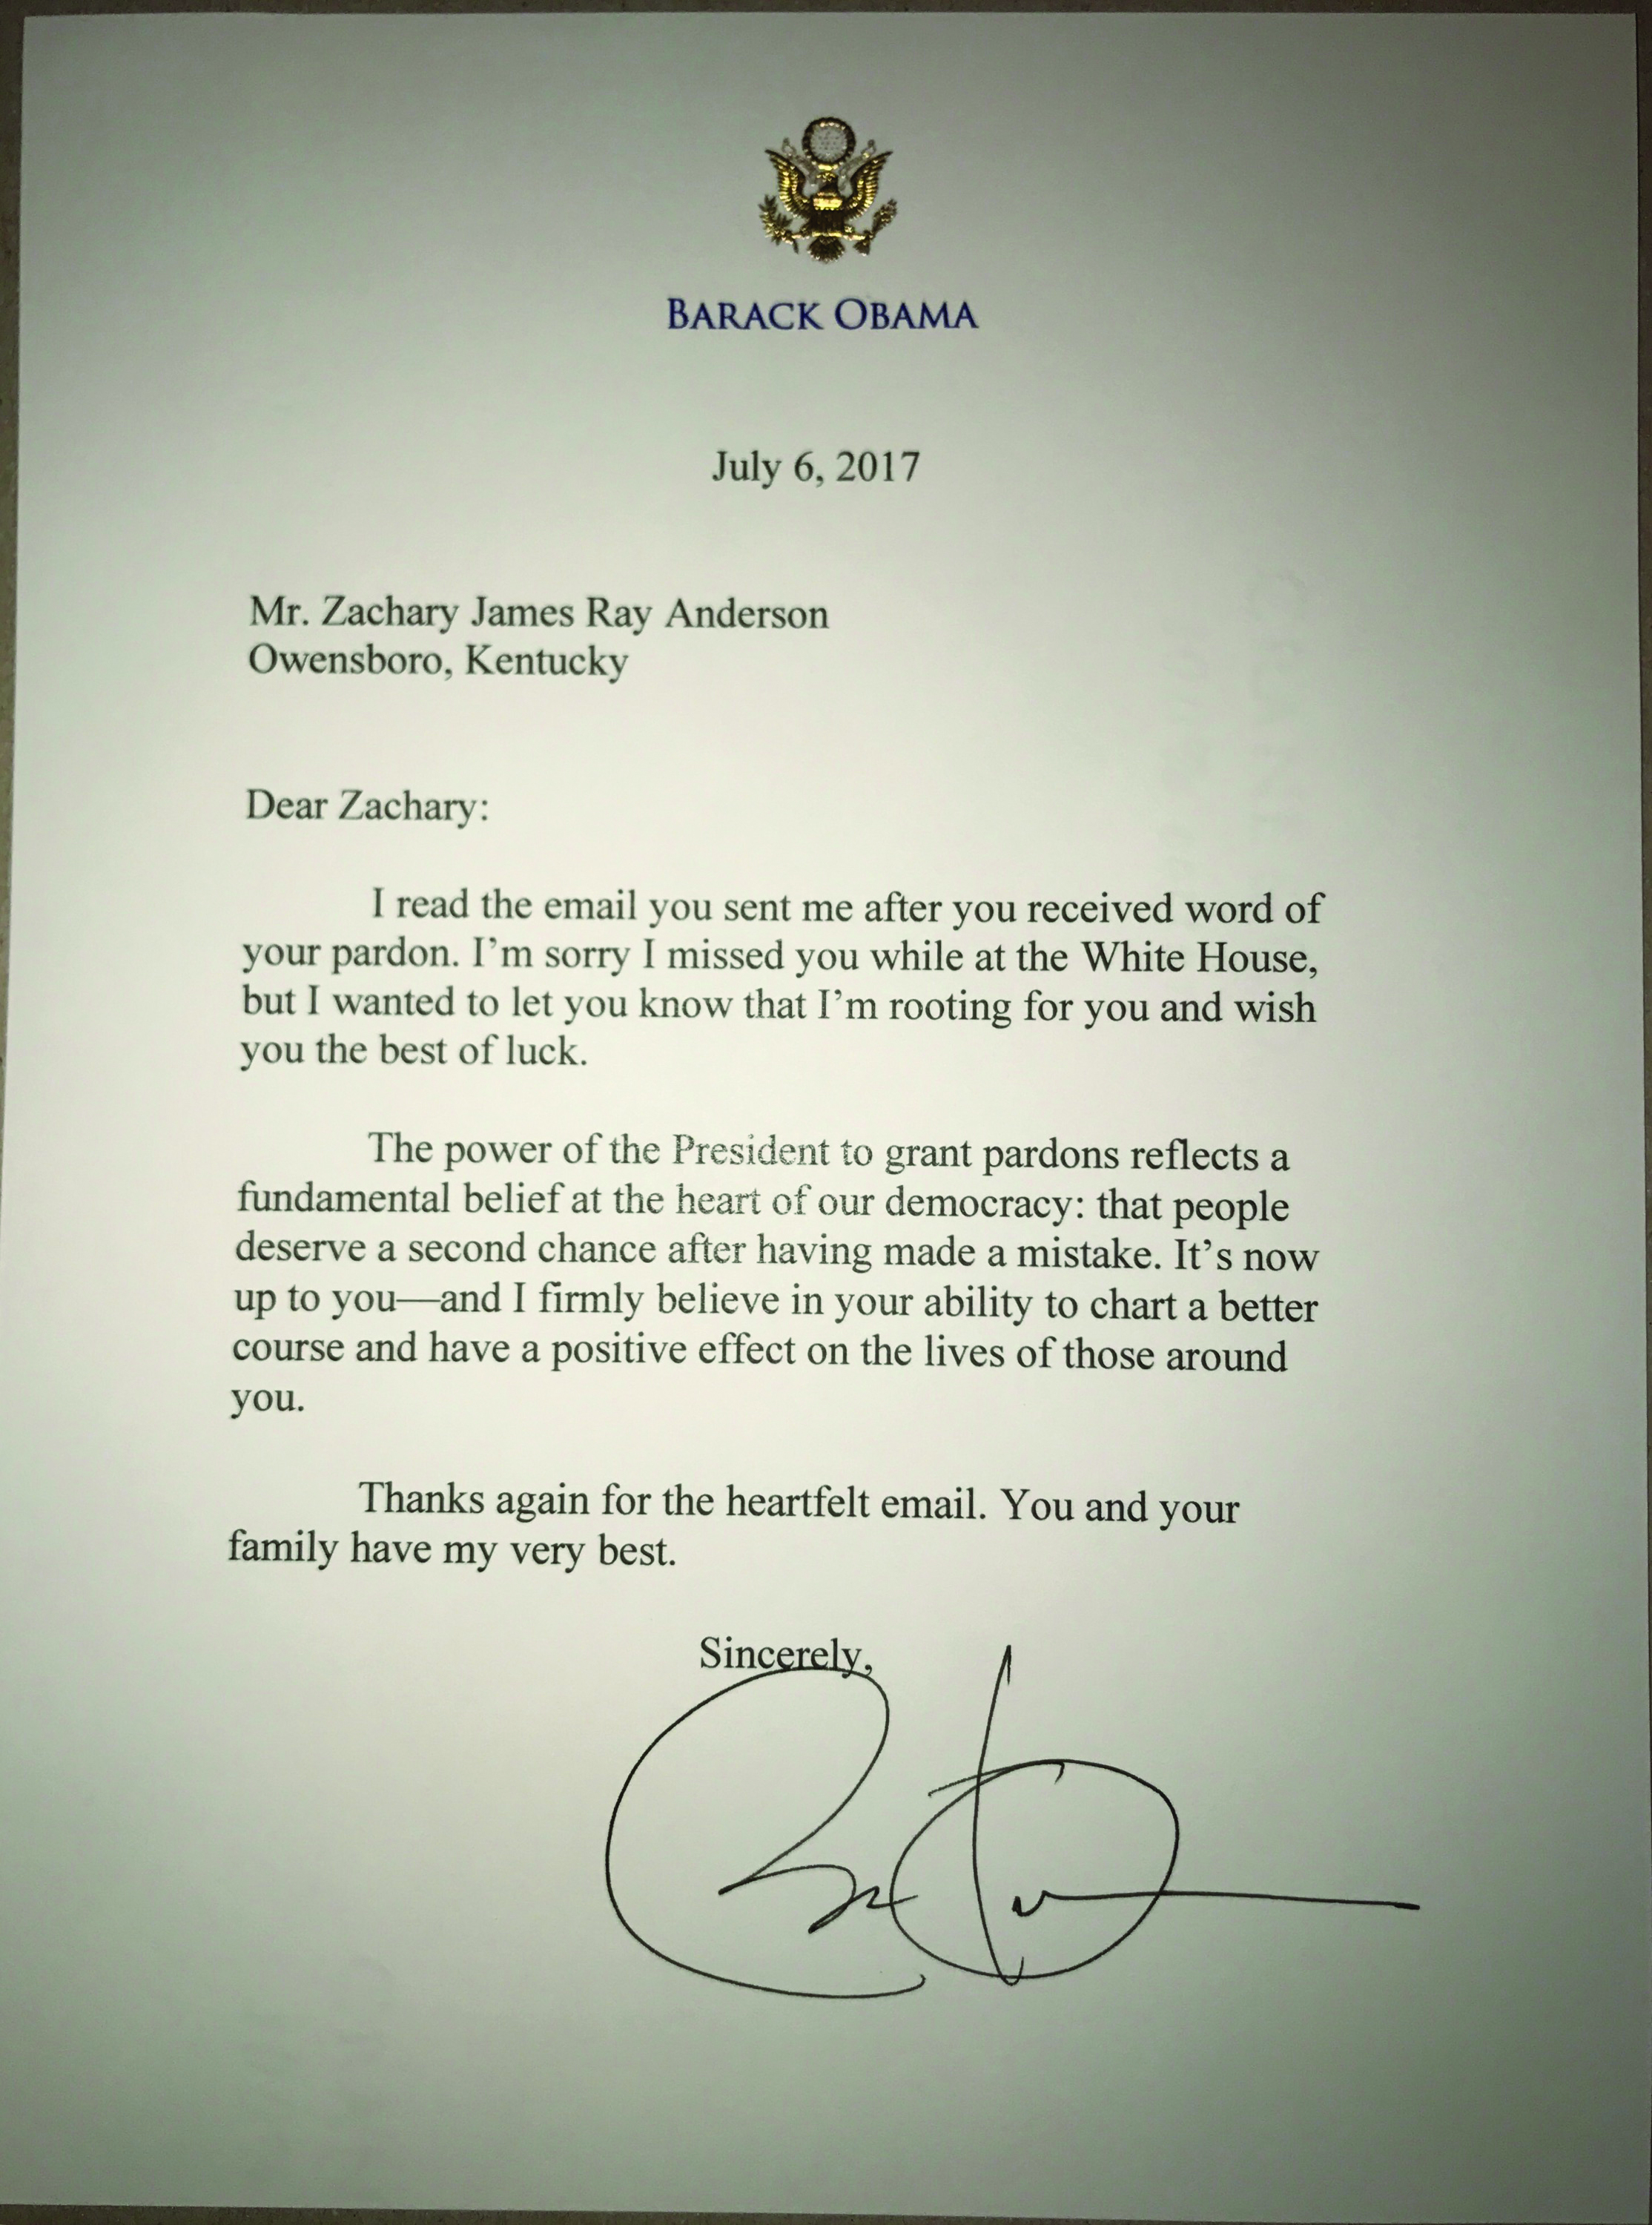 BARACK OBAMA
July 6, 2017
Mr. Zachary James Ray Anderson
Owensboro, Kentucky
Dear Zachary:
I read the email you sent me after you received word of
your pardon. I’m sorry I missed you while at the White House,
but I wanted to let you know that I’m rooting for you and wish
you the best of luck.
The power of the President to grant pardons reflects a
fundamental belief at the heart of our democracy: that people
deserve a second chance after having made a mistake. It’s now
up to you—and I firmly believe in your ability to chart a better
course and have a positive effect on the lives of those around
you.
Thanks again for the heartfelt email. You and your
family have my very best.
Sincerely,